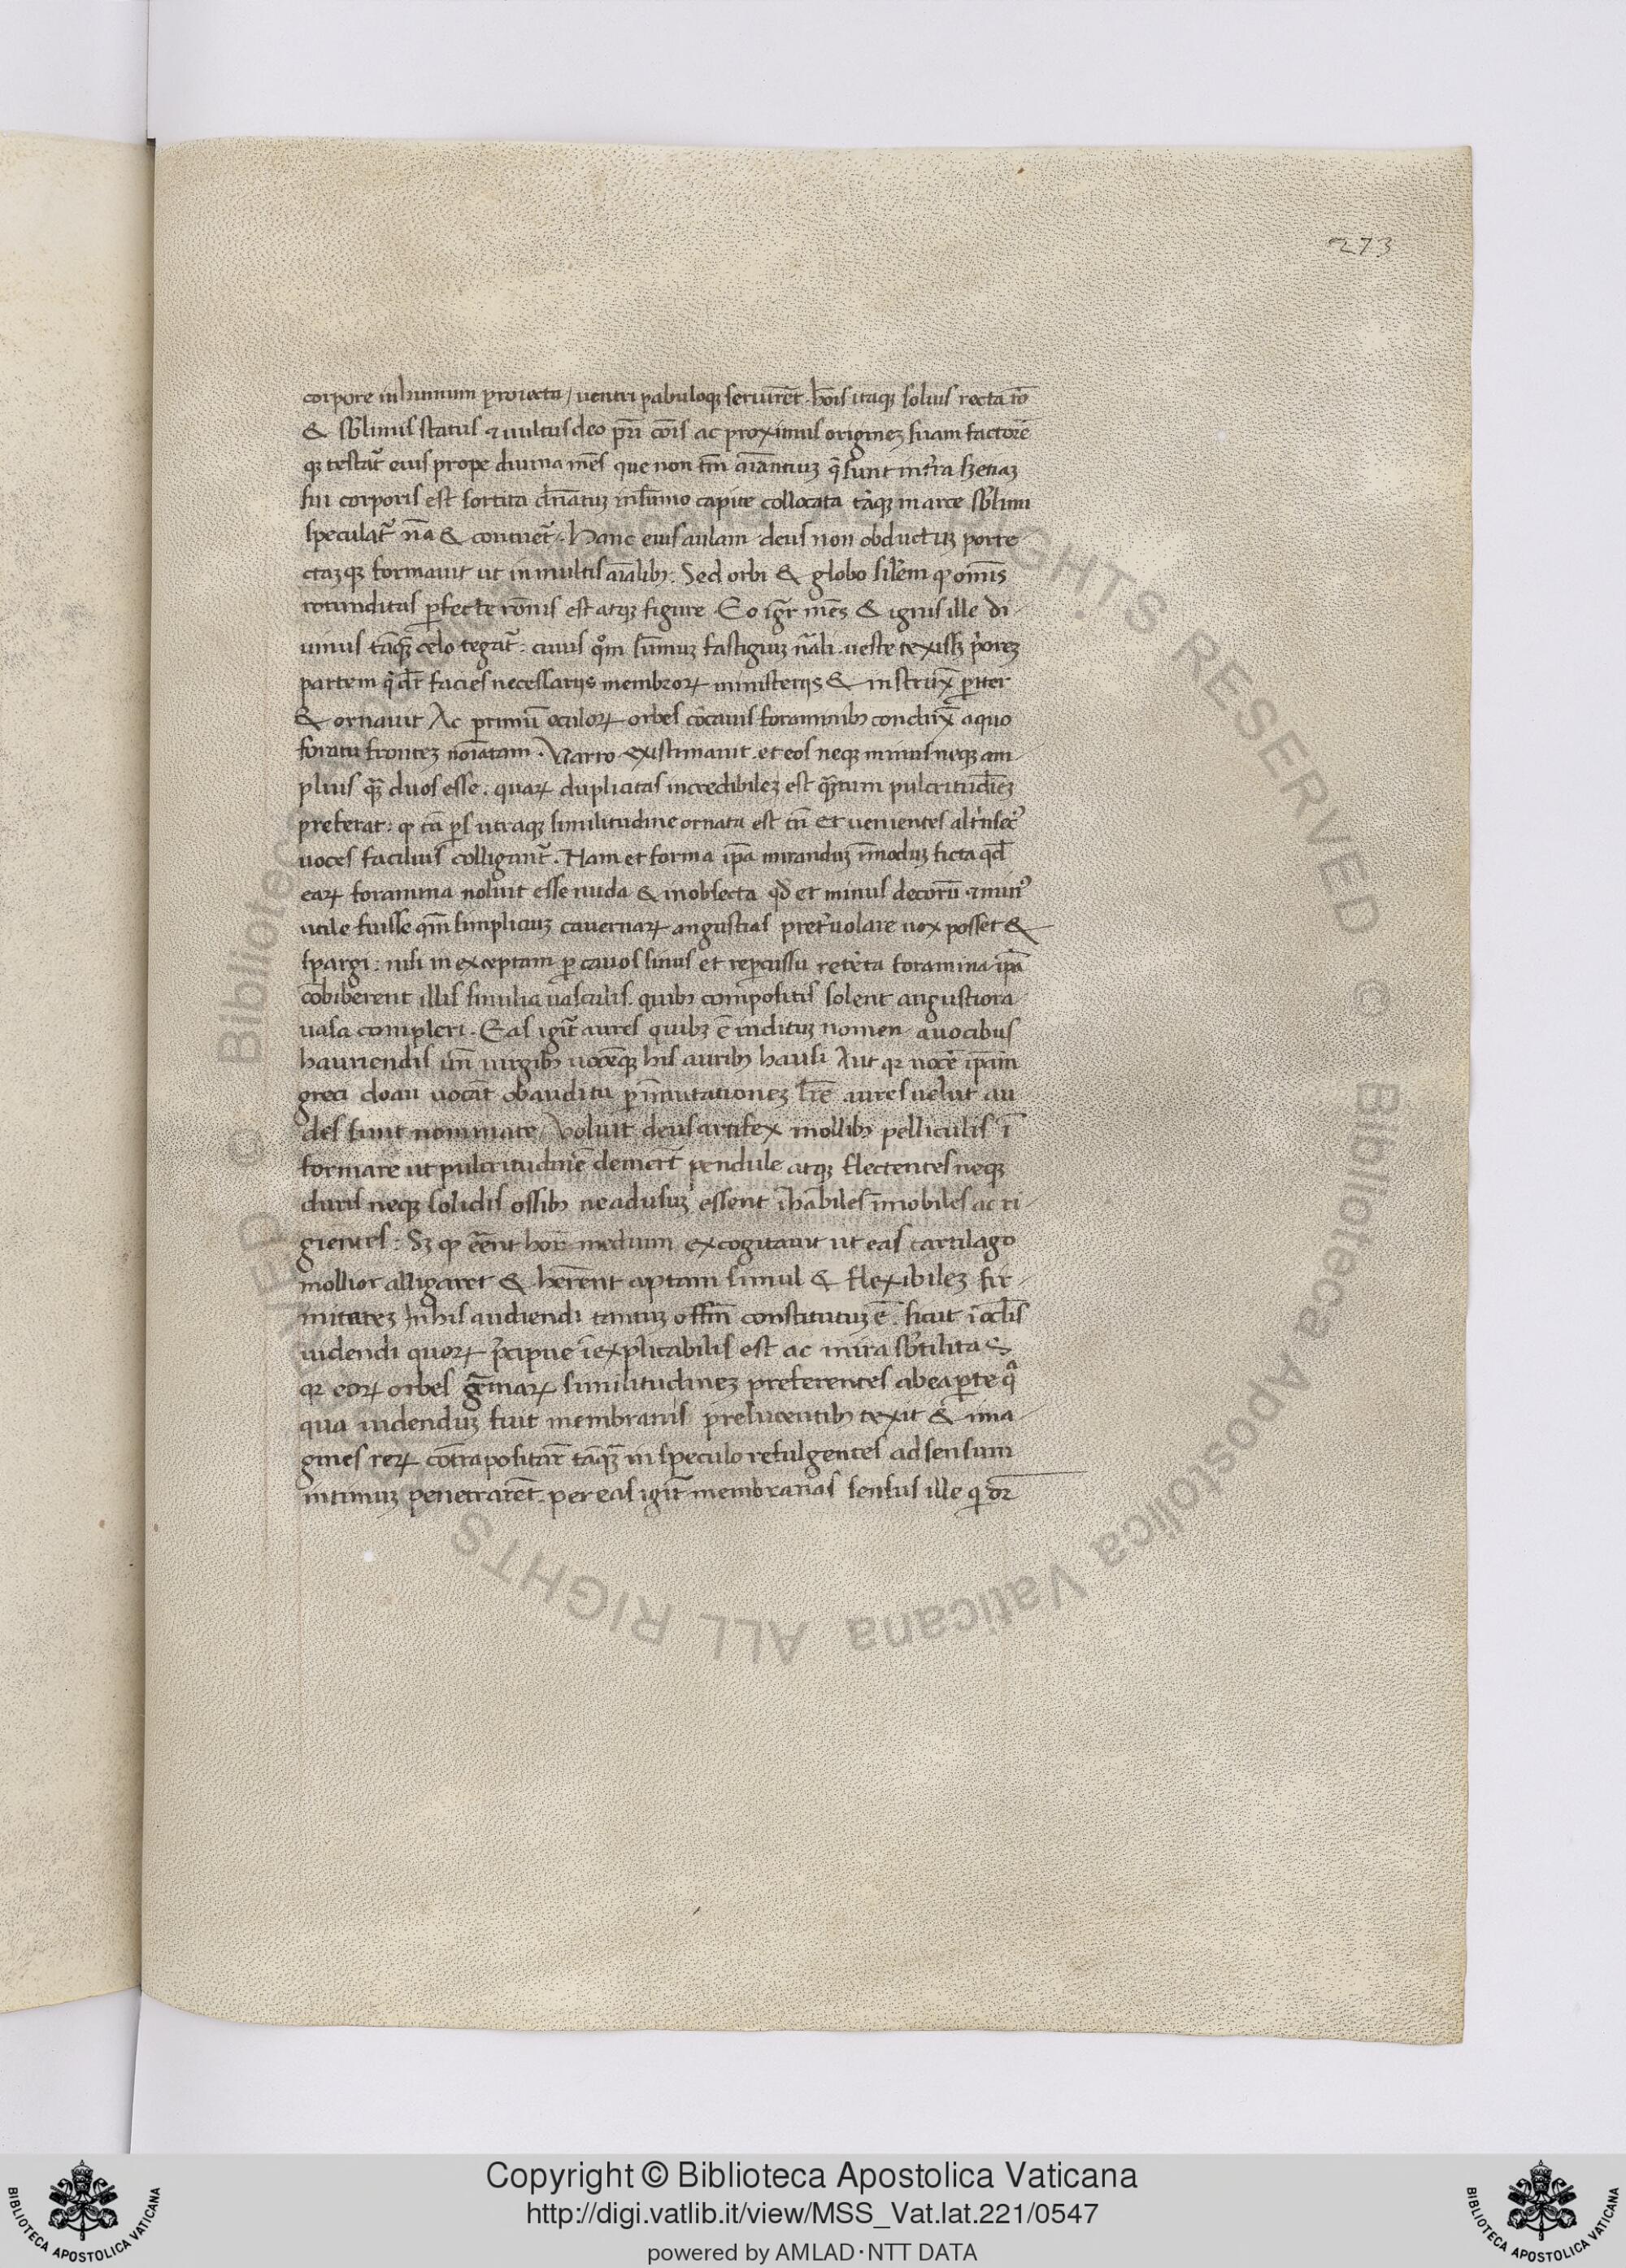 273
corpore in humum proiecta / uentri pabuloqꝫ seruirēt. hoīs itaqꝫ solius recta rō
& sb̄limis status ⁊ uultus deo pr̄i cōis ac proximus origineꝫ suam factorē
qꝫ testat̄ eius prope diuina mēs que non tm̄ aīantiuꝫ q̄ sunt infra sꝫ etiaꝫ
sui corporis est sortita dn̄atuꝫ in sūmo capite collocata tāqꝫ in arce sb̄limi
speculat̄ n̄a & contuet̄. Hanc eius aulam deus non obductaꝫ porre
ctaꝫqꝫ formauit ut in multis aīalibꝫ. Sed orbi & globo sil̄em qꝫ om̄is
rotunditas ꝑfecte rōnis est atqꝫ figure. Eo igr̄ mēs & ignis ille di
uinus tāqꝫ celo tegat̄: cuius qm̄ sūmuꝫ fastigiuꝫ nāli ueste texissꝫ prioreꝫ
partem q̄ dr̄ facies necessarijs membroꝝ ministerijs & instrux̄ ꝑiter
& ornauit Ac primū oculoꝝ orbes cōcauis foraminibꝫ conclux̄ a quo
foratu fronteꝫ noīatam. Varro existimauit. et eos neqꝫ minus neqꝫ am
plius qꝫ duos esse. quaꝝ duplicitas incredibileꝫ est qꝫtum pulcritudīeꝫ
preferat: qꝫ tā ps utraqꝫ similitudine ornata est tū et uenientes altrīsec̄
uoces facilius colligant̄. Nam et forma ip̄a miranduꝫ īmoduꝫ ficta qd̄
eaꝝ foramina noluit esse nuda & inobsecta qd̄ et minus decorū ⁊ minꝰ
utile fuisse qm̄ simpliciuꝫ cauernaꝝ angustias preteruolare uox posset &
spargi: nisi in exceptam ꝑ cauos sinus et reꝑcussu retēta foramina ip̄a
cohiberent illis similia uasculis. quibꝫ compositis solent angustiora
uasa compleri. Eas igit̄ aures quibꝫ ē inditūꝫ nomen a uocibus
hauriendis un̄ uirgilꝫ uocēqꝫ his auribꝫ hausi Aut qꝛ uocē ip̄am
greci doau uocāt ob auditu ꝑ īmutationeꝫ lr̄e aures uelut au
des sunt nominate / Voluit deus artifex mollibꝫ pelliculis ī
formare ut pulcritudinē demerēt pendule atqꝫ flectentes neqꝫ
duris neqꝫ solidis ossibꝫ ne ad usuꝫ essent īhabiles īmobiles ac ri
gientes: Sꝫ qꝫ eēnt hoꝝ medium excogitauit ut eas cartilago
mollior alligaret & herēnt aptam simul & flexibileꝫ fir
mitateꝫ In his audiendi tantuꝫ offm̄ constitutuꝫ ē. sicut ī oc̄lis
uidendi quoꝝ p̄cipue īexplicabilis est ac mira sb̄tilitas
qꝛ eoꝝ orbes gēmaꝝ similitudineꝫ preferentes ab ea ꝑte q̄
qua uidenduꝫ fuit membranis prelucentibꝫ texit & ima
gines reꝝ cōtra positaꝝ tāqꝫ in speculo refulgentes ad sensum
intimuꝫ penetrarēt. per eas igit̄ membranas sensus ille qi dr̄
Copyright © Biblioteca Apostolica Vaticana
http://digi.vatlib.it/view/MSS_Vat.lat.221/0547
powered by AMLAD·NTT DATA
BIBLIOTECA APOSTOLICA VATICANA
BIBLIOTECA APOSTOLICA VATICANA